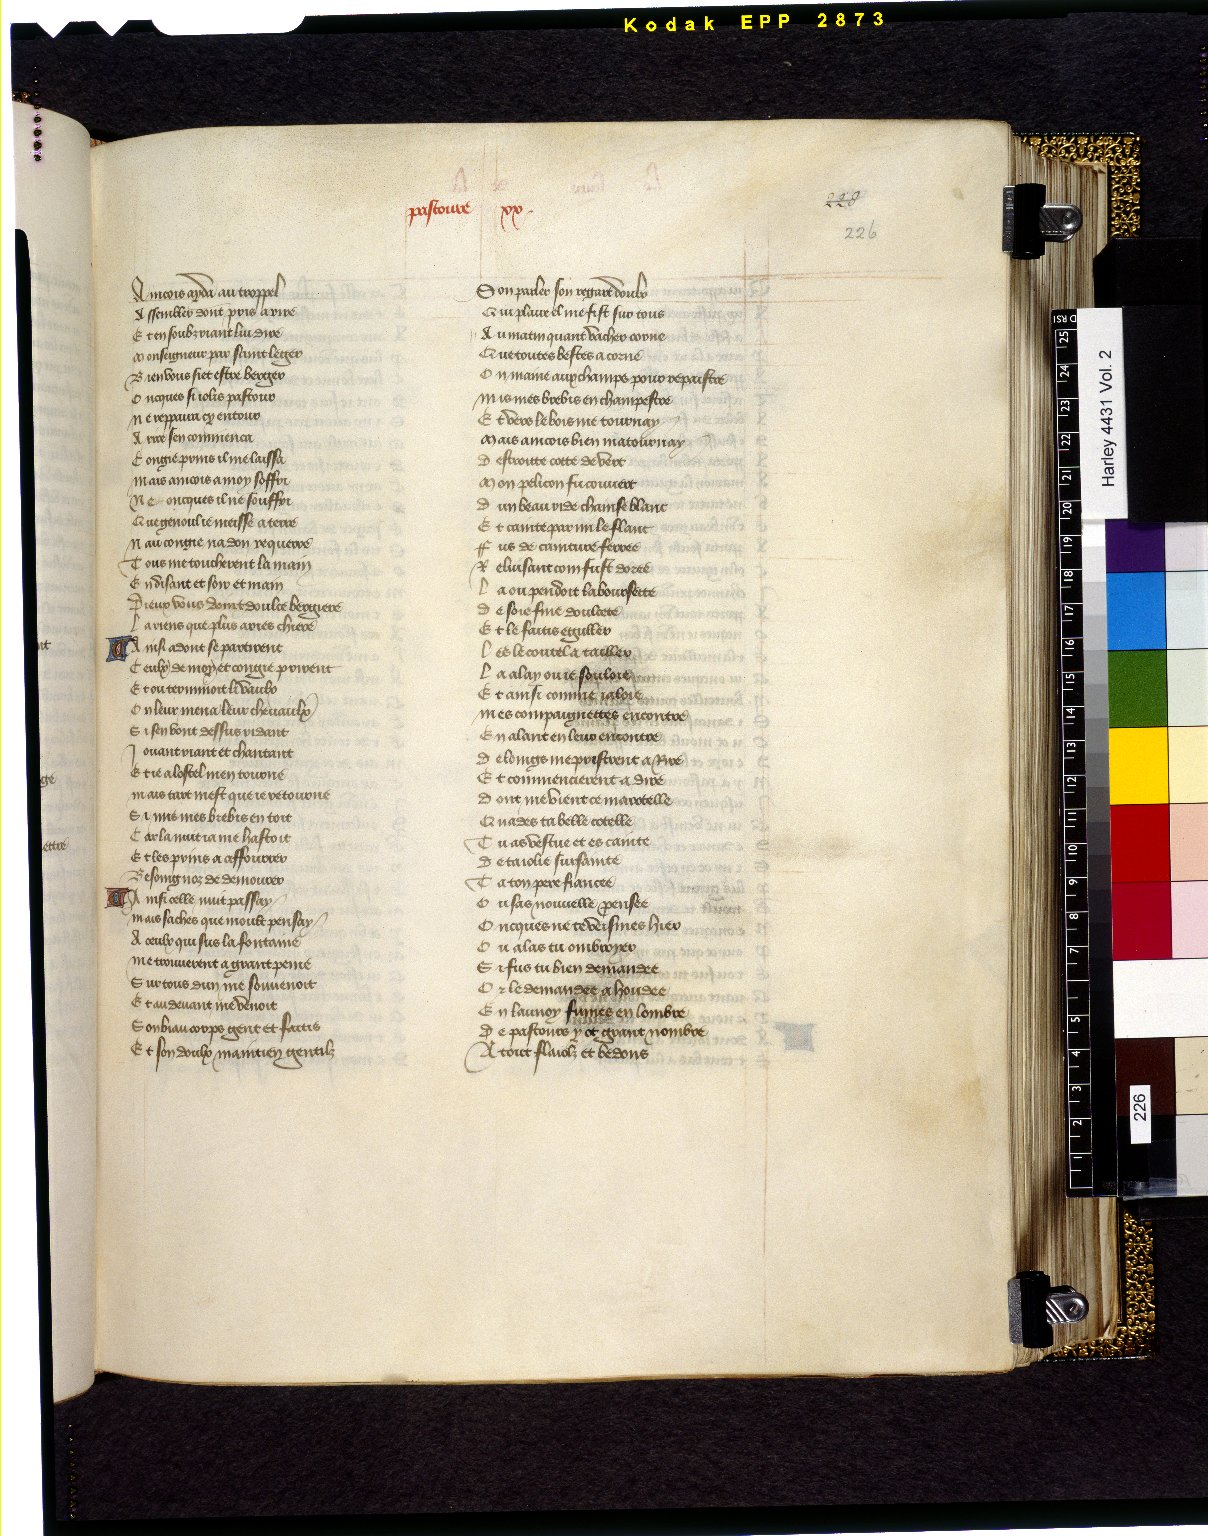 Kodak EPP 2873
pastoure xx.
228
226
Aincois ayda au troppel
Assembler dont pris a rire
Et en soubzriant lui dire
Monseigneur par saint legier
Bien vous siet estre bergier
Oncques si iolis pastour
Ne reppaira cy entour
A rire sen commenca
Congie prins il me laissa
Mais aincois a moy soffri
Ne oncques il ne souffri
Que genoulz meisse a terre
Nau congie na don requerre
Tous me toucherent la main
En disant et soir et main
Dieux vous doint doulce bergiere
La riens que plus aries chiere
Ainsi adont se partirent
Ceulx de moy et congie prirent
On leur mena leur chevaulx
Si sen vont dessus ridant
Jouant riant et chantant
Et ie a lostel men tourne
Mais tart mest que ie retourne
Si mis mes brebis en toit
Car la nuit ia me hastoit
Et les prins a affourrer
Besoing noz de demourer
Ainsi celle nuit passay
Mais saches que moult pensay
A ceulx qui sus la fontaine
Me trouverent a grant peine
Sur tous dun me souvenoit
Et au devant me venoit
Son biau corps gent et faitis
Et son doulx maintien gentilz
Son parler son regart doulx
Qui plaire el me fist sur tous
Au matin quant vachier corne
Que toutes bestes a corne
On maine aux champs pour repaistre
Mis mes brebis en champestre
Et vers le bois me tournay
Mais aincois bien matournay
Destroitte cotte de vert
Mon pelicon fu couvert
Dun beau ride chainse blanc
Et cainte parmi le flanc
Fus de cainture ferree
Reluisant com fust doree
La ou pendoit la boursette
De soie fine doulcete
Et le faitis eguiller
Les le coutel a tailler
La alay ou ie souloie
Et ainsi comme ialoie
Mes compaignettes encontre
En alant en leur encontre
De loings me pristrent a rire
Et commencierent a dire
Dont me vient ce marotelle
Quades ta belle cotelle
Tu as vestue et es cainte
De ta iolie sursainte
Ta ton pere fiancee
Ou sas nouvelle pensee
Oncques ne te veismes hier
Ou alas tu ombroyer
Si fus tu bien demandee
Or le demandee a houdee
En launoy fumes en lombre
De pastours y ot grant nombre
A tout flaiolz et bedons
Harley 4431 Vol. 2
226